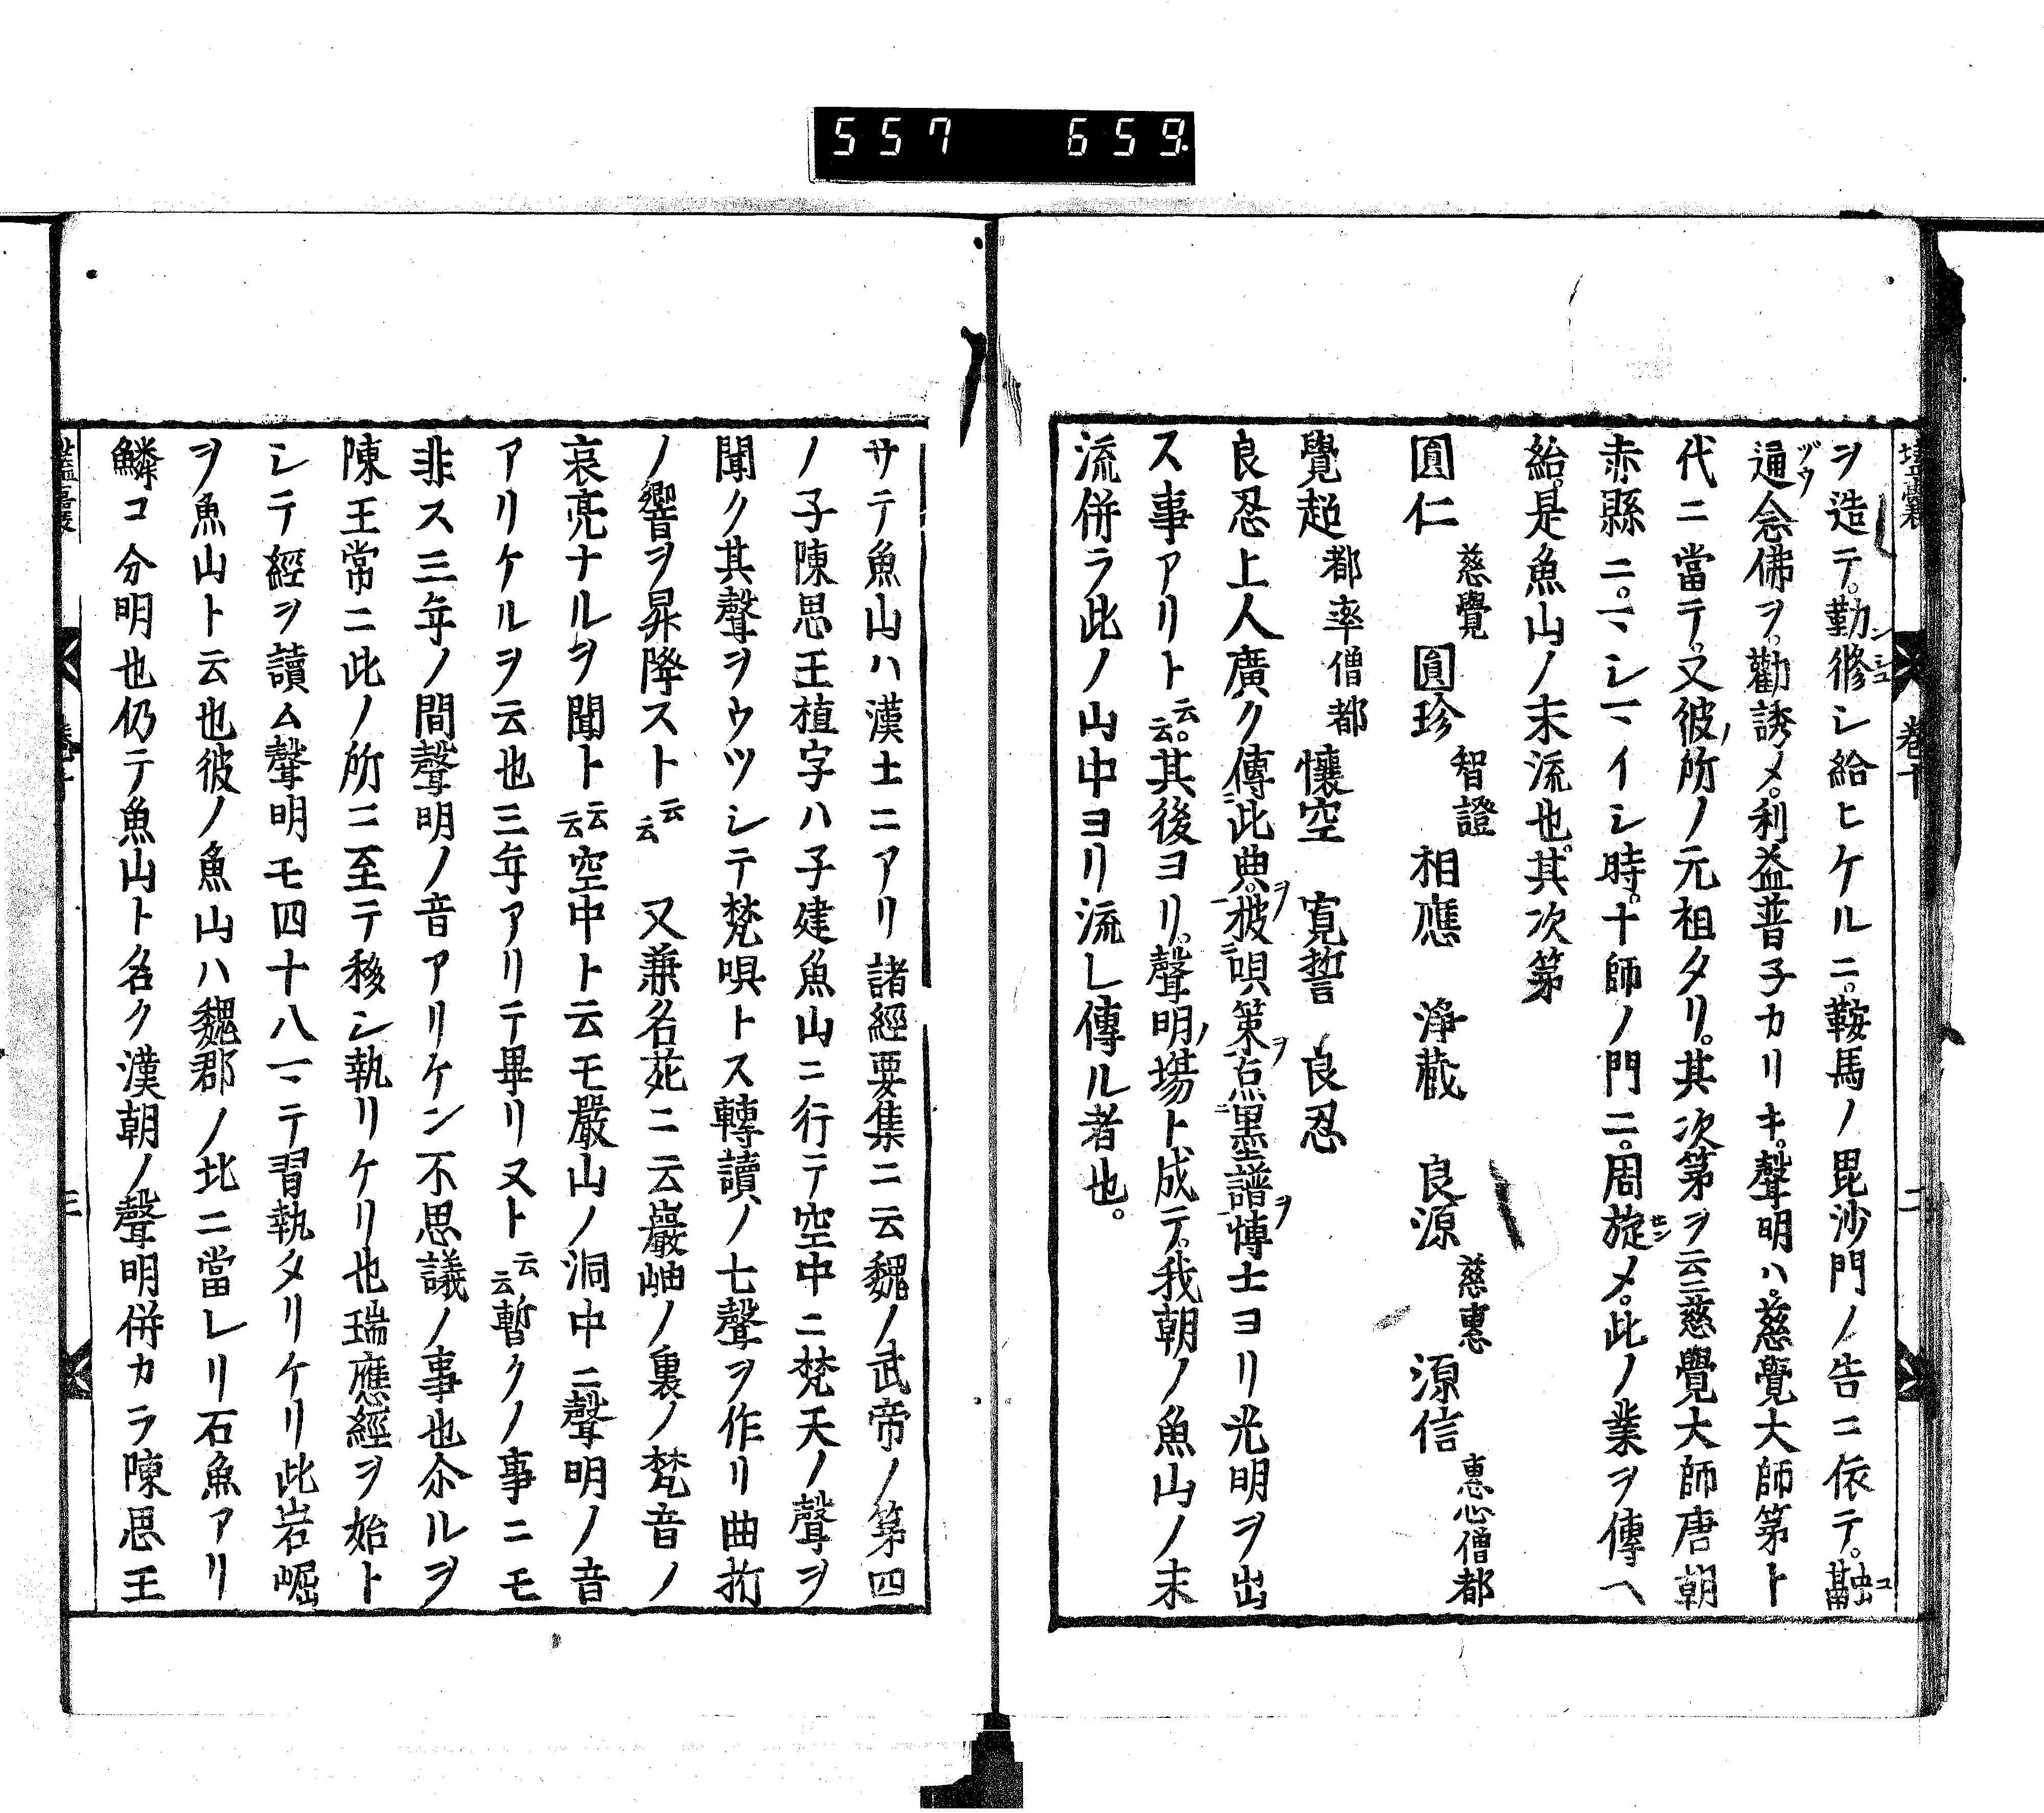 557 659
ヲ造テ。勤修シ給ヒケルニ。鞍馬ノ毘沙門ノ告ニ依テ。融
通念佛ヲ。勸誘メ。利益普子カリキ。聲明ハ。慈覺大師第ト
代ニ當テ。又彼ノ所ノ元祖タリ。其次第ヲ云ニ慈覺大師唐朝
赤縣ニ。一ヽシ一ヽイシ時。十師ノ門ニ。周旋メ。此ノ業ヲ傳ヘ
給。是魚山ノ末流也。其次第
圓仁 慈覺 圓珍 智證 相應 淨藏 良源 慈惠 源信 惠心僧都
覺超 都率僧都 懷空 寬誓 良忍
良忍上人廣ク傳此典ヲ。披唄策ヲ点墨譜ヲ博士ヨリ光明ヲ出
ス事アリト云云。其後ヨリ。聲明ノ場ト成テ。我朝ノ魚山ノ末
流併ラ此ノ山中ヨリ流レ傳ル者也。
サテ魚山ハ漢土ニアリ諸經要集ニ云魏ノ武帝ノ第四
ノ子陳思王植字ハ子建魚山ニ行テ空中ニ梵天ノ聲ヲ
聞ク其聲ヲウツシテ梵唄トス轉讀ノ七聲ヲ作リ曲折
ノ響ヲ昇降スト云云 又兼名苑ニ云巖岫ノ裏ノ梵音ノ
哀亮ナルヲ聞ト云云空中ト云モ嚴山ノ洞中ニ聲明ノ音
アリケルヲ云也三年アリテ畢リヌト云云暫クノ事ニモ
非ス三年ノ間聲明ノ音アリケン不思議ノ事也尒ルヲ
陳王常ニ此ノ所ニ至テ移シ執リケリ也瑞應經ヲ始ト
シテ經ヲ讀ム聲明モ四十八一ヽテ習執タリケリ此岩崛
ヲ魚山ト云也彼ノ魚山ハ魏郡ノ北ニ當レリ石魚アリ
鱗コ分明也仍テ魚山ト名ク漢朝ノ聲明併カラ陳思王